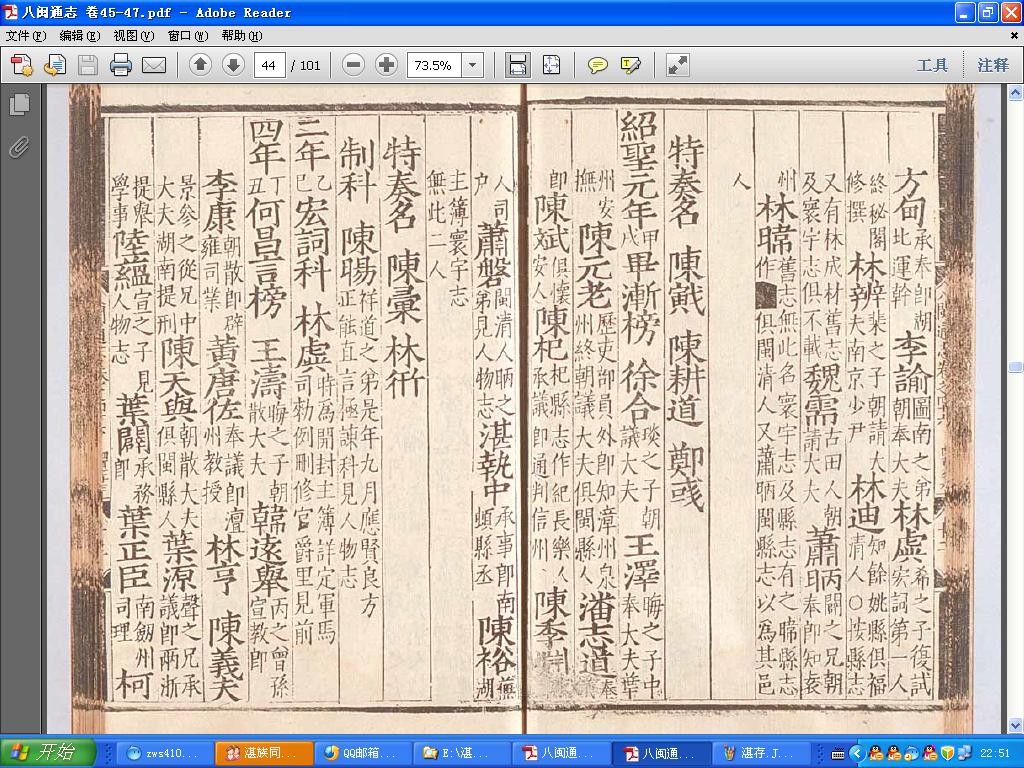 八闽通志 卷45-47.pdf - Adobe Reader
文件(F) 编辑(E) 视图(V) 窗口(W) 帮助(H)
44 / 101 73.5% 工具 注释
方甸 承奉郎湖北運幹 李諭 圖南之弟朝奉大夫 林虙 希之子復試宏詞第一人
終秘閣修撰 林辞 棐之子朝請大夫南京少尹 林迪 知餘姚縣俱福清人○按縣志
又有林成材舊志及寰宇志俱不載 魏需 古田人朝請大夫 蕭昞 闢之兄朝奉郎知袁
州 林 舊志無此名寰宇志及縣志有之 縣志作 俱閩清人又蕭昞閩縣志以為其邑
人
特奏名 陳戩 陳耕道 鄭彧
紹聖元年 甲戌 畢漸榜 徐合 琰之子朝議大夫 王澤 晦之子中奉大夫葉
州安撫 陳元老 歷吏部員外郎知漳州泉州終朝議大夫俱閩縣人 潘志道 奉
郎 陳斌 俱懷安人 陳杞 杞縣志作紀長樂人承議郎通判信州 陳季
人司户 蕭磐 閩清人昞之弟見人物志 湛執中 承事郎南頓縣丞 陳裕 蕪湖
主簿寰宇志無此二人
特奏名 陳彙 林
制科 陳暘 祥道之弟是年九月應賢良方正能直言極諫科見人物志
二年 乙巳 宏詞科 林虙 時為開封主簿詳定軍馬司勑例刪修官爵里見前
四年 丁丑 何昌言榜 王濤 晦之子朝散大夫 韓遠舉 丙之曾孫宣教郎
李康 朝散郎辟雍司業 黃唐佐 奉議郎澶州教授 林亨 陳義夫
景參之從兄中大夫湖南提刑 陳天與 朝散大夫俱閩縣人 葉源 聲之兄承議郎兩浙
提舉學事 陸蘊 宣之子見人物志 葉闢 承務郎 葉正臣 南劔州司理 柯
开始 zws410... 湛族同... QQ邮箱... E:\湛... 八闽通... 八闽通... 湛存.J... 22:51